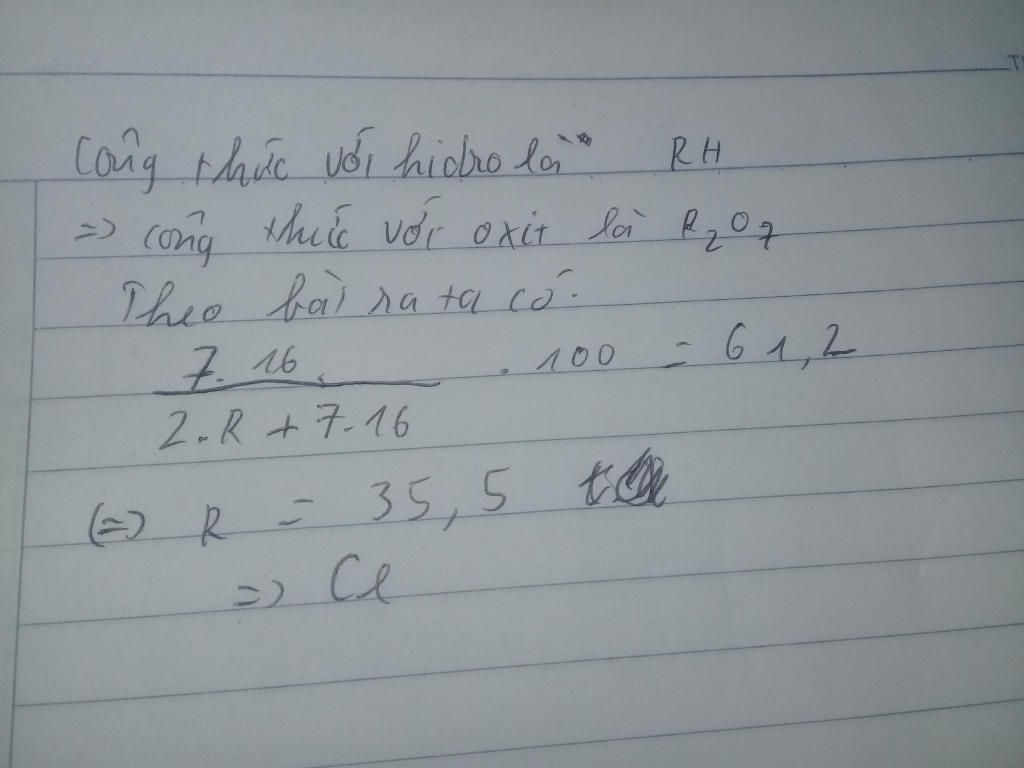 Công thức với hidro là RH
=> công thức với oxit là R₂O₇
Theo bài ra ta có.
7.16
. 100 = 61,2
2.R + 7.16
(=) R = 35,5
=> Cl